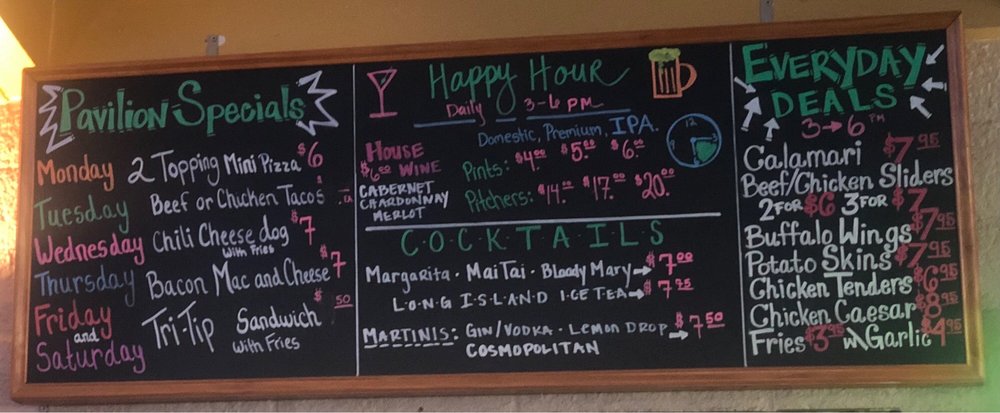 Pavilion Specials
Monday 2 Topping Mini Pizza $6
Tuesday Beef or Chicken Tacos
Wednesday Chili Cheese dog $7
with Fries
Thursday Bacon Mac and Cheese $7
Friday and Saturday Tri-Tip Sandwich $ .50
with Fries
Happy Hour
Daily 3-6 PM
House $6.00 Wine
Cabernet
Chardonnay
Merlot
Domestic, Premium, IPA.
Pints: $4.00 $5.00 $6.00
Pitchers: $14.00 $17.00 $20.00
12
COCKTAILS
Margarita · Mai Tai · Bloody Mary → $7.00
LONG ISLAND ICE TEA → $7.95
MARTINIS: GIN/VODKA · LEMON DROP → $7.50
COSMOPOLITAN
EVERYDAY
DEALS
3→6 PM
Calamari $7.95
Beef/Chicken Sliders
2 FOR $6 3 FOR $7
Buffalo Wings $7.95
Potato Skins $7.95
Chicken Tenders $6.95
Chicken Caesar $8.95
Fries $3.95 w/Garlic $4.95